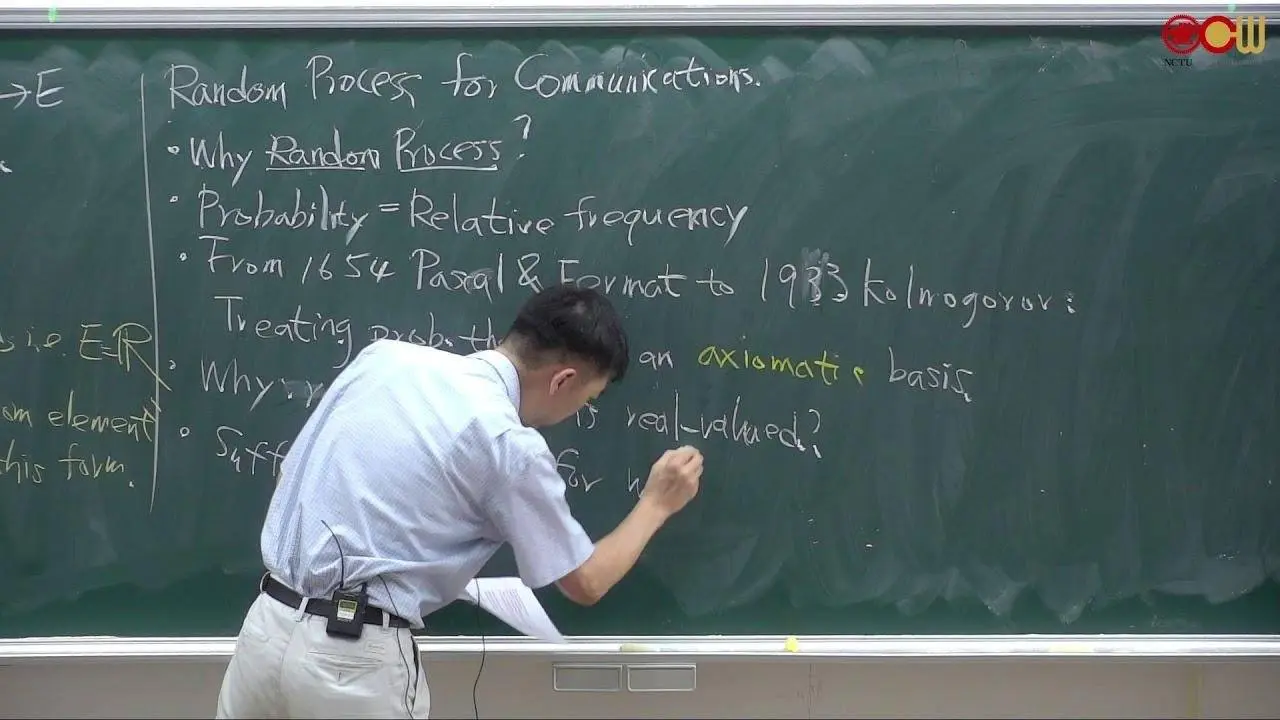 →E
Random Process for Communications.
• Why Random Process?
• Probability = Relative frequency
• From 1654 Pascal & Format to 1933 Kolmogorov:
Treating prob. th an axiomatic basis
i.e. E=R
• Why is real-valued?
om element
• Suff for
this form.
NCTU
OCW